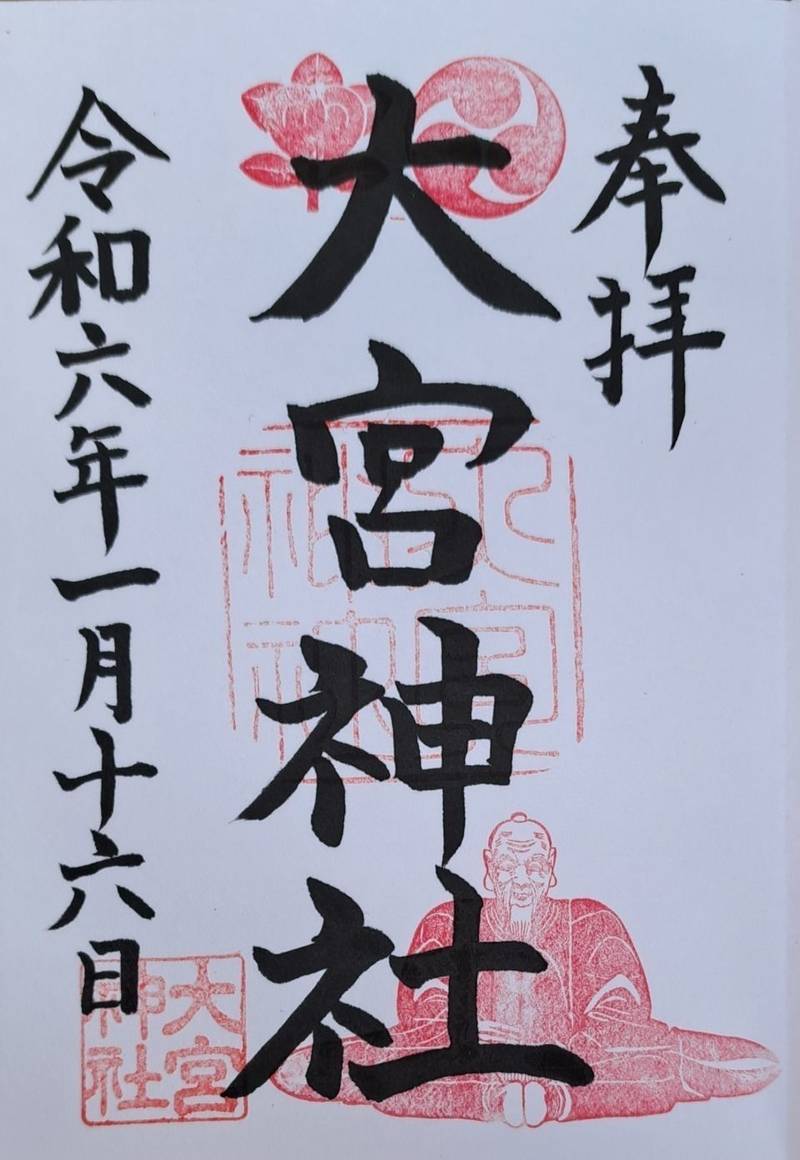 奉拝
大宮神社
令和六年一月十六日
大宮神社
大宮神社